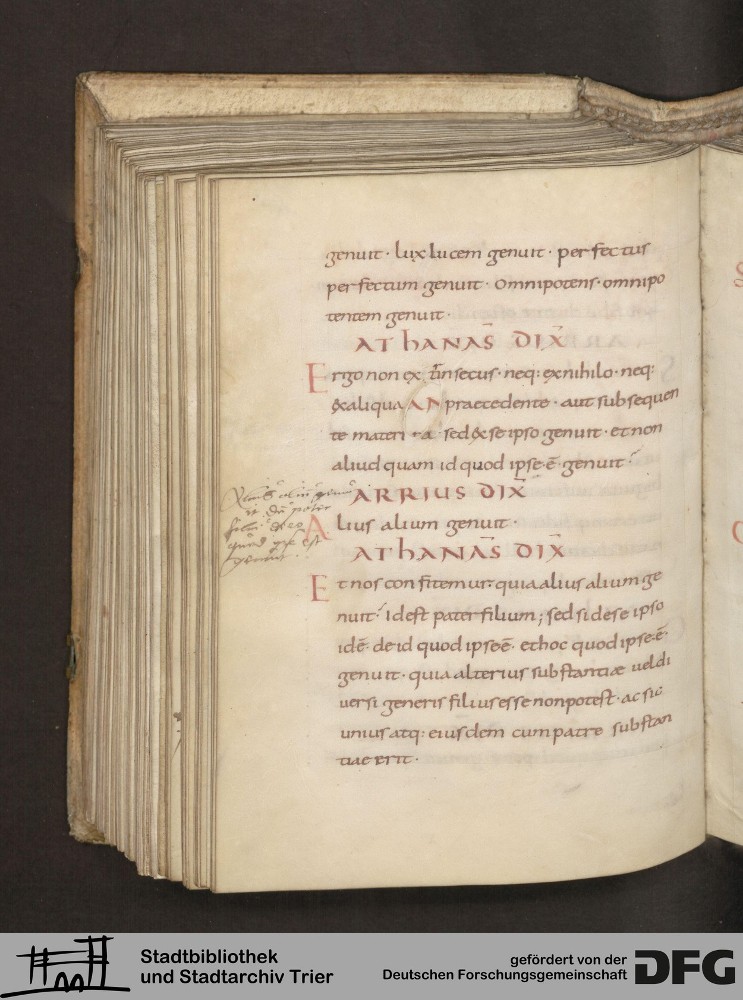 genuit · lux lucem genuit · perfectus
perfectum genuit · Omnipotens · omnipo
tentem genuit ·
AThANAS̄ DIX̄
Ergo non ex t̄rinsecus · neq: ex nihilo · neq:
ex aliqua AN praecedente · aut subsequen
te materi a · sed ex se ipso genuit · et non
aliud quam id quod ipse ē genuit ·
ARRIUS DIX̄
Alius alium genuit ·
AThANAS̄ DIX̄
Et nos confitemur quia alius alium ge
nuit · Idest pater filium ; sed si de se ipso
idē · de id quod ipse ē · et hoc quod ipse ē ·
genuit · quia alterius substantiæ uel di
uersi generis filius esse non potest · ac sic
unius atq: eiusdem cum patre substan
tiae erit ·
genuit
Stadtbibliothek
und Stadtarchiv Trier
gefördert von der
Deutschen Forschungsgemeinschaft
DFG